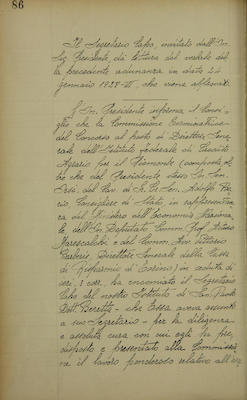 86
Il Segretario Capo, invitato dall'On.
Sig. Presidente, dà lettura del verbale del-
la precedente adunanza in data 24
gennaio 1928-VI, che viene approvato.
L'On. Presidente informa il Consi-
glio che la Commissione Esaminatrice
del Concorso al posto di Direttore Gene-
rale dell'Istituto federale di Credito
Agrario per il Piemonte (composta ol-
tre che del Presidente stesso On. Sen.
del Cav. di Gr. Cr. On. Adolfo
Consigliere di Stato, in rappresentan-
za del Ministro dell'Economia Naziona-
le, dell'On. Deputato Comm. Prof. Arturo
Marescalchi e del Comm. Avv. Vittorio
Direttore Generale della Cassa
di Risparmio di Torino) in seduta di
ieri, 1 corr., ha encomiato il Segretario
Capo del nostro Istituto di San Paolo
Dott. Beretta - che Essa aveva assunto
a suo Segretario - per la diligenza
e assoluta cura con cui egli ha pre-
disposto e presentato alla Commissio-
ne il lavoro ponderoso relativo all'